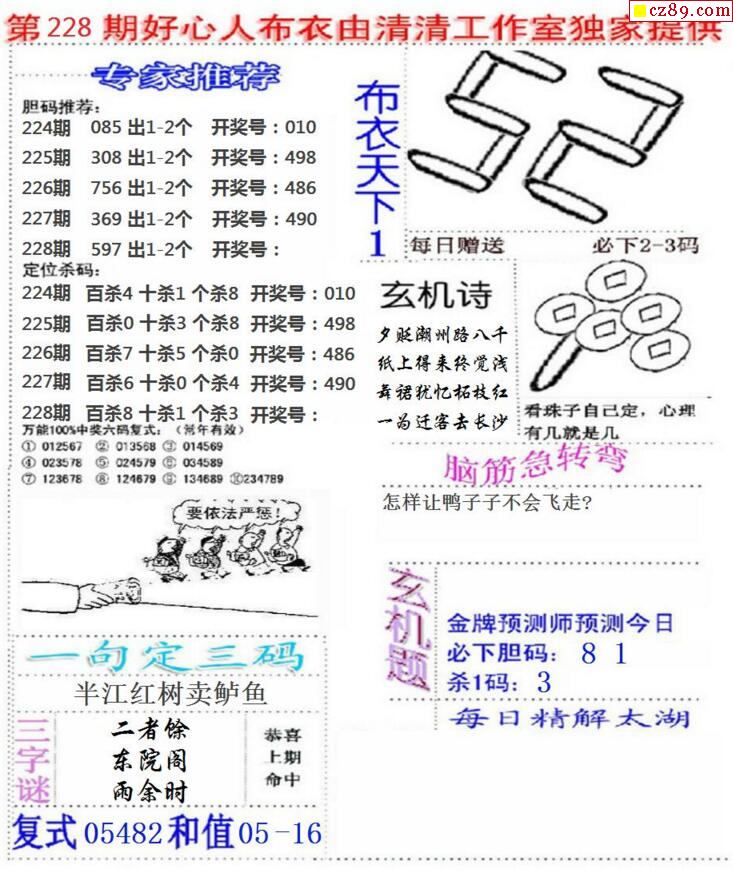 cz89.com
第228期好心人布衣由清清工作室独家提供
专家推荐
胆码推荐：
224期 085 出1-2个 开奖号：010
225期 308 出1-2个 开奖号：498
226期 756 出1-2个 开奖号：486
227期 369 出1-2个 开奖号：490
228期 597 出1-2个 开奖号：
定位杀码：
224期 百杀4 十杀1 个杀8 开奖号：010
225期 百杀0 十杀3 个杀8 开奖号：498
226期 百杀7 十杀5 个杀0 开奖号：486
227期 百杀6 十杀0 个杀4 开奖号：490
228期 百杀8 十杀1 个杀3 开奖号：
万能100%中奖六码复式：（常年有效）
① 012567 ② 013568 ③ 014569
④ 023578 ⑤ 024579 ⑥ 034589
⑦ 123678 ⑧ 124679 ⑨ 134689 ⑩234789
要依法严惩！
一句定三码
半江红树卖鲈鱼
三字谜
二者馀
东院阁
雨余时
恭喜
上期
命中
复式05482和值05-16
布衣天下1
52
每日赠送 必下2-3码
玄机诗
夕贬潮州路八千
纸上得来终觉浅
舞裙犹忆柘枝红
一为迁客去长沙
看珠子自己定，心理
有几就是几
脑筋急转弯
怎样让鸭子子不会飞走?
玄机题
金牌预测师预测今日
必下胆码：8 1
杀1码：3
每日精解太湖